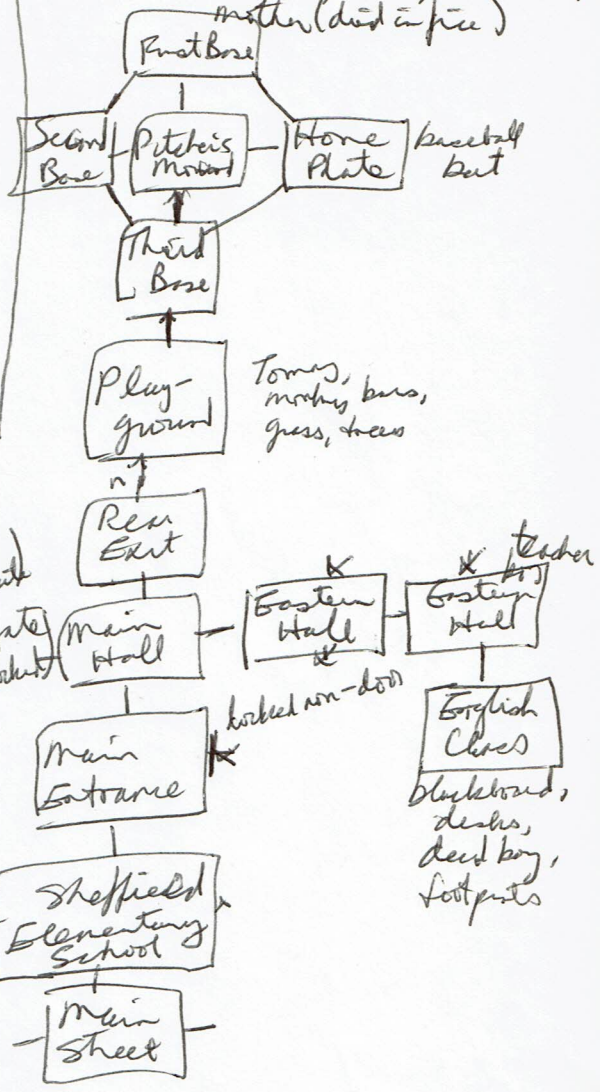 mother (died in fire)
First Base
Second
Base
Pitcher's
Mound
Home
Plate
baseball
bat
Third
Base
Play-
ground
Tommy,
monkey bars,
grass, trees
n
Rear
Exit
Main
Hall
Eastern
Hall
teacher
Eastern
Hall
locked non-door
Main
Entrance
English
Class
blackboard,
desks,
dead boy,
footprints
Sheffield
Elementary
School
Main
Street